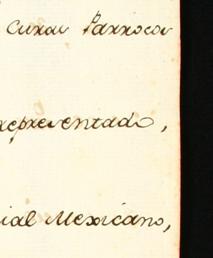 Curas Párrocos
representado,
ial Mexicano,